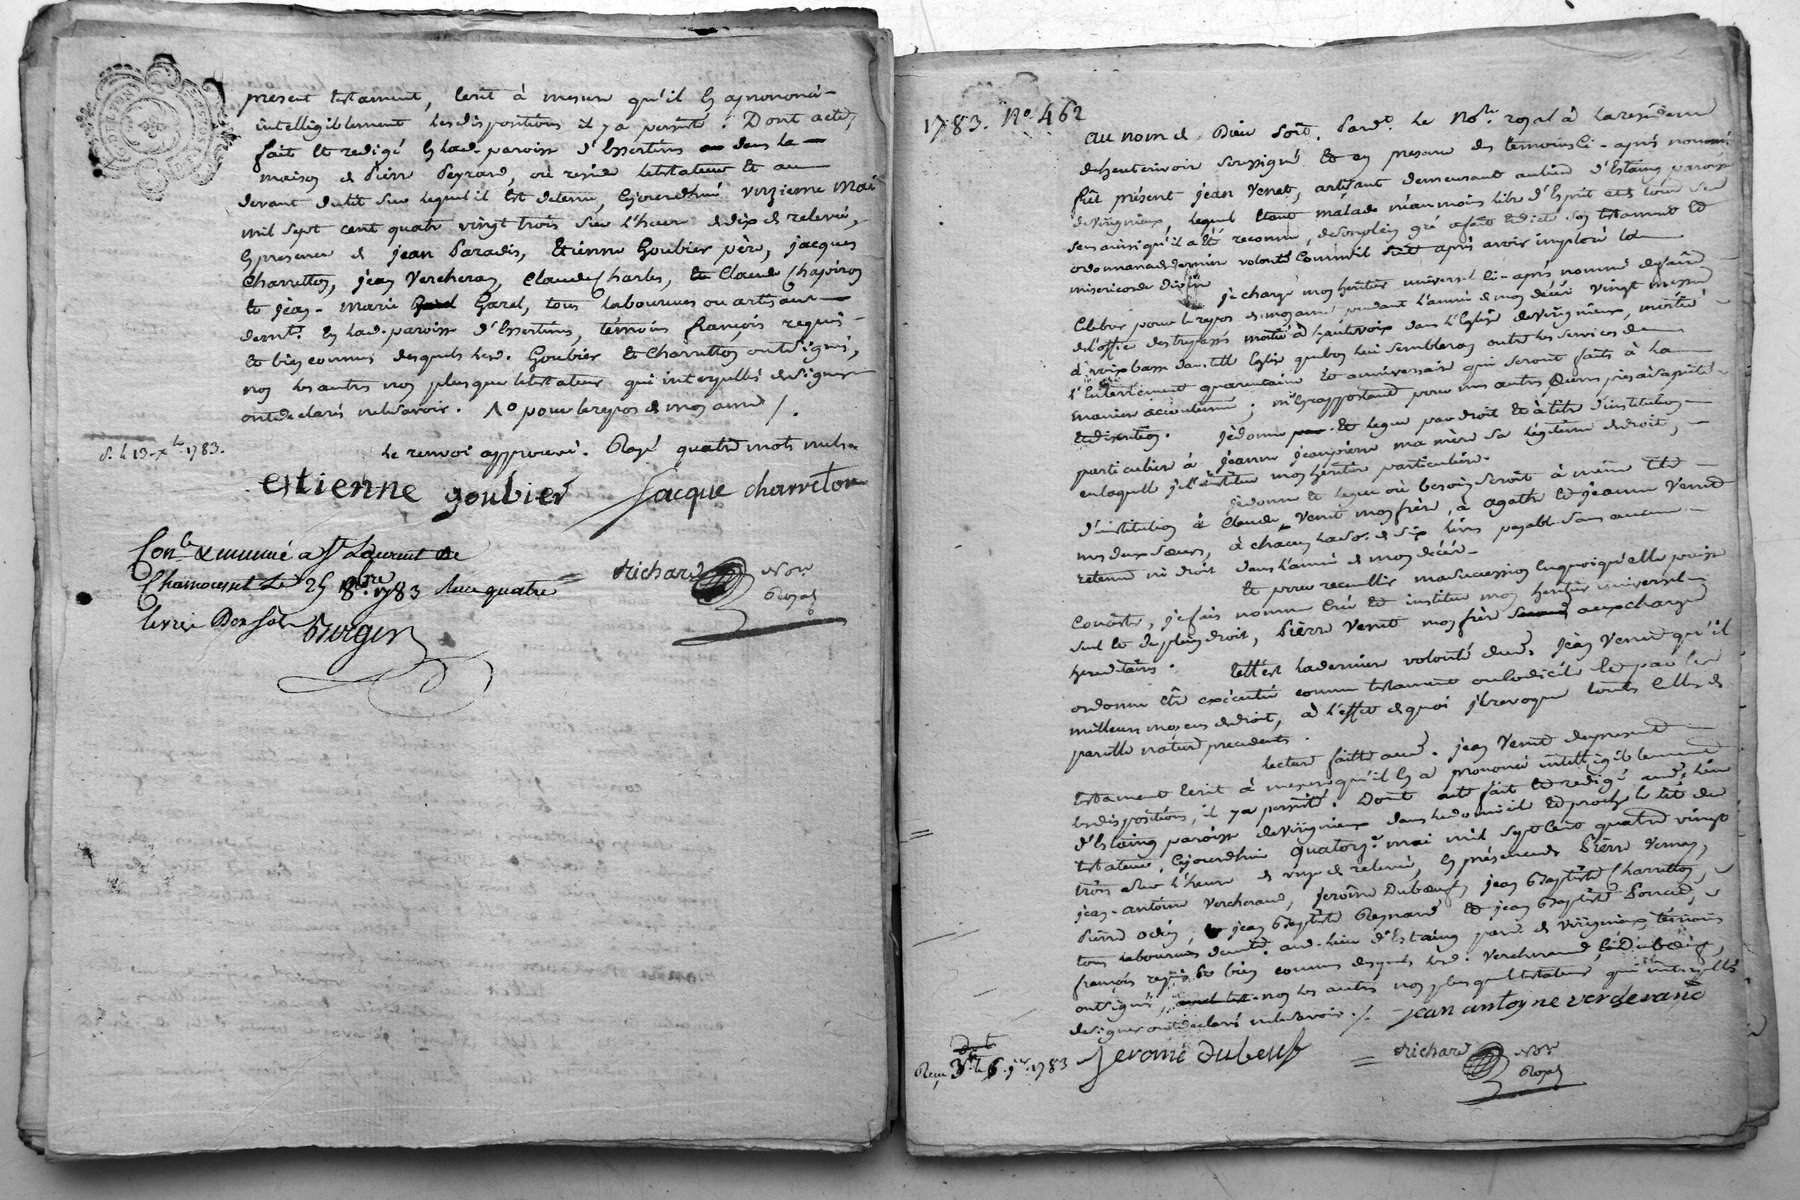 present testament, ecrit à mesure qu'il en a prononcé
intelligiblement les dispositions il y a persisté. Dont acte,
fait et redigé en lad. paroisse d'Essertines dans la
maison de Pierre Peyrard, où reside le testateur et au
devant du lit sur lequel il est detenu, cejourdhui unzieme mai
mil sept cent quatre vingt trois sur l'heure de dix de relevée,
en presence de jean Paradis, Etienne Goubier père, jacques
Charretton, jean Vercheras, Claude Charles, et Claude Chapiron
et jean-marie Garel, tous laboureurs ou artisans
demt. en lad. paroisse d'Essertines, témoins françois requis
et bien connus desquels lesd. Goubier et Charretton ont signé,
non les autres non plus que le testateur qui interpellés de signer
ont declaré ne le savoir. No pour le repos de mon ame /.
le renvoi approuvé. Rayé quatre mots nuls
d. le 19 xbre 1783.
estienne goubier jacque charreton
Conlé & insinué a St Laurent de
Chamousset Le 25 8bre 1783 Reçu quatre
livres Dix sols
Richard Nore
Royal
1783. No. 462
au nom de Dieu soit. Pardt. le Nore royal à la résidence
soussigné et en presence des temoins ci-après nommés
fût présent jean Venet, artisant demeurant au lieu d'Estaing paroisse
de Virignieux, lequel étant malade néanmoins libre d'Esprit et de tous ses
sens ainsi qu'il a été reconnu, de son plein gré a fait et dicté son testament et
ordonnance de derniere volonté comme il suit après avoir imploré la
misericorde divine
je charge mon héritier universel ci-après nommé de faire
celebrer pour le repos de mon ame, pendant l'année de mon décès vingt messes
de l'office des trepassés moitié à haute voix dans l'Eglise de Virignieux, moitié
à voix basse dans telle Eglise que bon lui semblera, outre les services de
l'Enterrement quarantaine et anniversaire qui seront faits à la
maniere accoutumée; m'en rapportant pour mes autres Œuvres pies à sa piété
et discretion. je donne et legue par droit et à titre d'institution
particuliere à jeanne jeanpierre ma mère sa légitime de droit,
en laquelle je l'institue mon héritiere particuliere.
je donne et legue où besoin seroit à même titre
d'institution à Claude Venet mon frère, à agathe et jeanne Venet
mes deux sœurs, à chacun la so. de six livres payable sans aucune
retenue ni droit dans l'année de mon décès.
et pour recueillir ma succession en quoi qu'elle puisse
consister, je fais nomme crée et institue mon heritier universel
seul et de plein droit, Pierre Venet mon frère aux charges
hereditaires. telle est la derniere volonté dud. jean Venet qu'il
ordonne être exécutée comme testament ou codicile et par les
meilleurs moyens de droit, à l'effet de quoi il revoque toutes celles de
pareille nature precedentes.
lecture faitte aud. jean Venet du present
testament ecrit à mesure qu'il en a prononcé intelligiblement
les dispositions, il y a persisté. Dont acte fait et redigé aud. lieu
d'Estaing paroisse de Virignieux dans le domicile et proche le lit du
testateur, cejourdhui quatorze mai mil sept cent quatre vingt
trois sur l'heure de de relevée, en présence de Pierre Vernay,
jean-antoine Vercherand, jerome Dubœuf, jean Baptiste Charretton,
Pierre Odin, jean Baptiste Reynard et jean Baptiste Poncet,
tous laboureurs demt. aud. lieu d'Estaing parsse de Virignieux, témoins
françois requis et bien connus desquels lesd. Vercherand, et Dubœuf,
ont signé, non les autres non plus que le testateur qui interpellés
de signer ont declaré ne le savoir. /. jean antoyne verderand
jerome dubeuf
Richard Nore
Royal